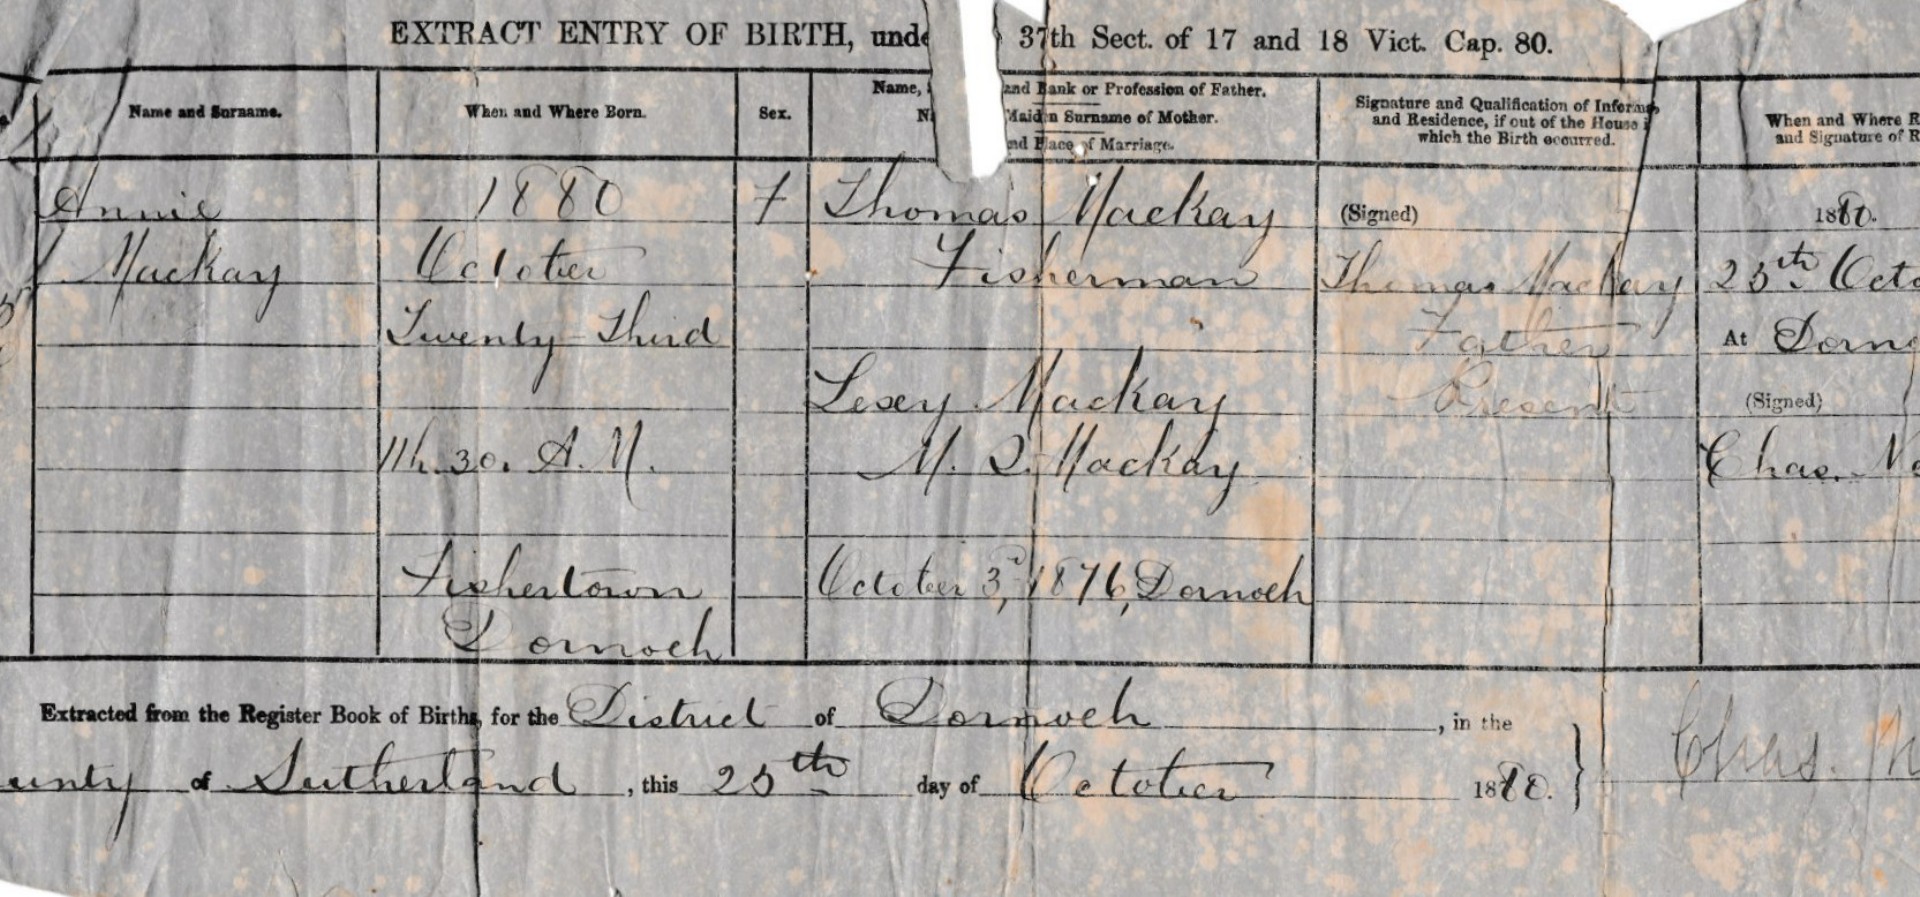 EXTRACT ENTRY OF BIRTH, unde 37th Sect. of 17 and 18 Vict. Cap. 80.
Name and Surname.
When and Where Born.
Sex.
Name, and Rank or Profession of Father.
Maiden Surname of Mother.
and Place of Marriage.
Signature and Qualification of Inform
and Residence, if out of the House i
which the Birth occurred.
When and Where R
and Signature of R
Annie
Mackay
1880
October
Twenty-Third
11h. 30. A.M.
Fishertown
Dornoch
F
Thomas Mackay
Fisherman
Lesey Mackay
M. S. Mackay
October 3rd, 1876, Dornoch
(Signed)
Thomas Mackay
Father
Present
1880.
25th Octo
At Dorno
(Signed)
Chas.
Extracted from the Register Book of Births, for the District of Dornoch, in the
unty of Sutherland, this 25th day of October 1880.
Chas.